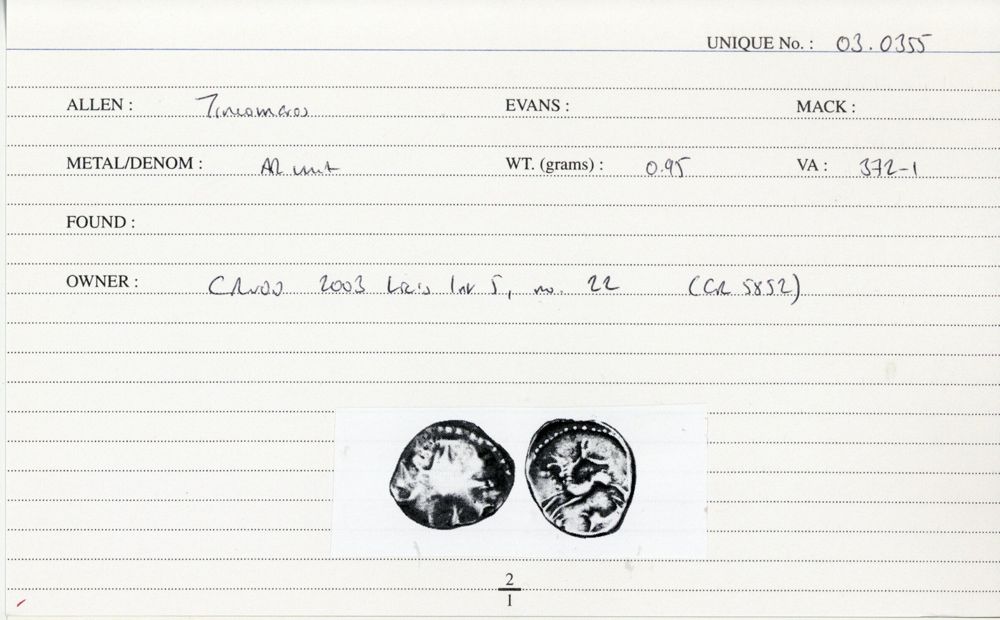 UNIQUE No. : 03.0355
ALLEN : Tincomaros EVANS : MACK :
METAL/DENOM : AR unit WT. (grams) : 0.95 VA : 372-1
FOUND :
OWNER : 2003 5, no. 22 (CR 5852)
2
1